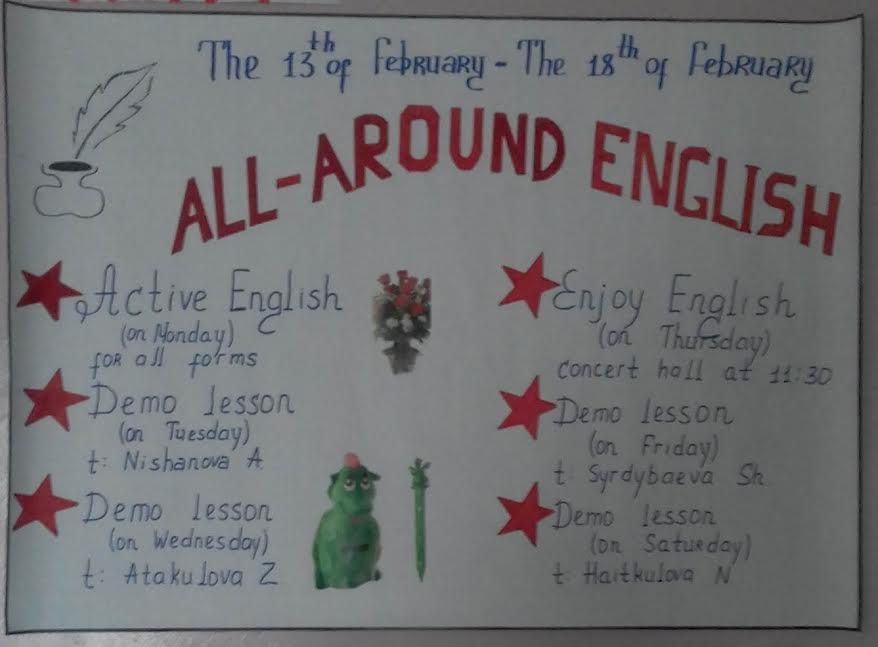 The 13th of February - The 18th of February
ALL-AROUND ENGLISH
Active English
(on Monday)
for all forms
Demo lesson
(on Tuesday)
t: Nishanova A.
Demo lesson
(on Wednesday)
t: Atakulova Z
Enjoy English
(on Thursday)
concert hall at 11:30
Demo lesson
(on Friday)
t: Syrdybaeva Sh
Demo lesson
(on Satueday)
t: Haitkulova N